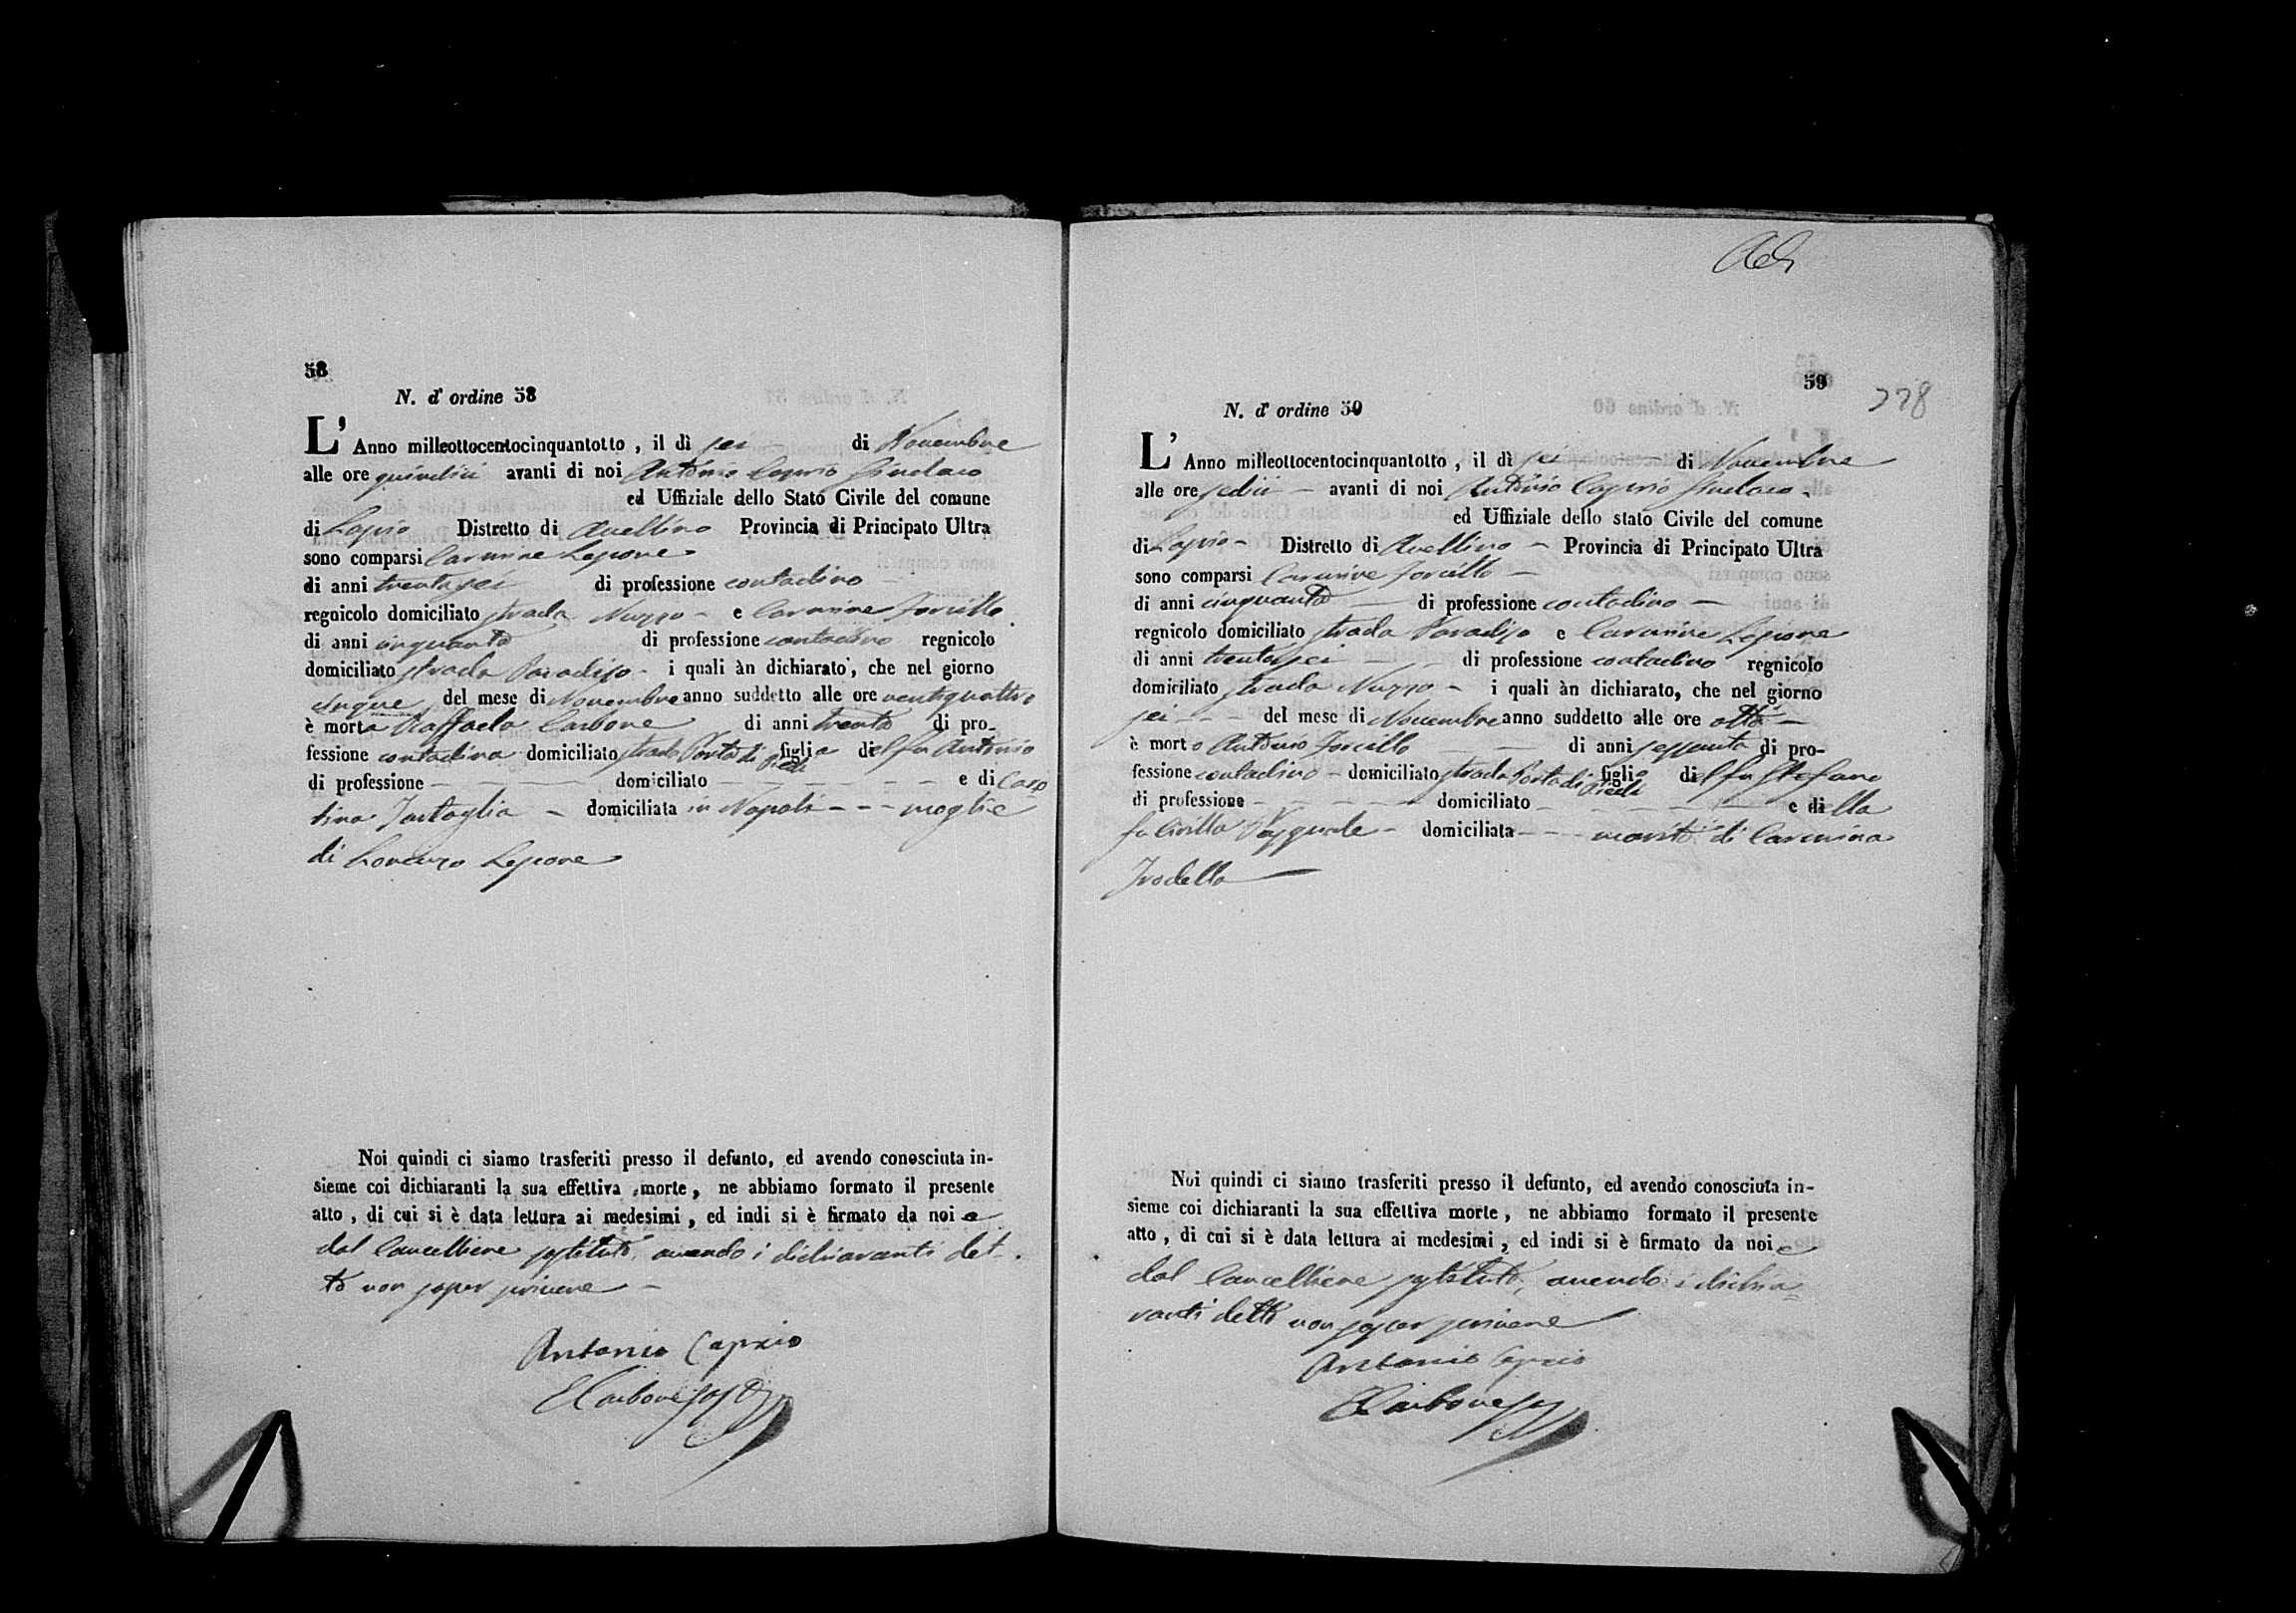 58
N. d'ordine 58
L'Anno milleottocentocinquantotto, il dì sei di Novembre
alle ore quindici avanti di noi Antonio Caprio Sindaco
ed Uffiziale dello Stato Civile del comune
di Lapio Distretto di Avellino Provincia di Principato Ultra
sono comparsi Carmine Lepore
di anni trentasei di professione contadino
regnicolo domiciliato strada Nuzzo e Carmine Forcillo
di anni cinquanta di professione contadino regnicolo
domiciliato strada Paradiso i quali àn dichiarato, che nel giorno
cinque del mese di Novembre anno suddetto alle ore ventiquattro
è morta Raffaela Carbone di anni trenta di pro-
fessione contadina domiciliato strada Porta di Piedi figlia del fu Antonio
di professione — domiciliato — e di Caro
lina Tartaglia – domiciliata in Napoli - - - moglie
di Lorenzo Lepore
Noi quindi ci siamo trasferiti presso il defunto, ed avendo conosciuta in-
sieme coi dichiaranti la sua effettiva morte, ne abbiamo formato il presente
atto, di cui si è data lettura ai medesimi, ed indi si è firmato da noi e
dal Cancelliere sostituto, avendo i dichiaranti det-
to non saper scrivere –
Antonio Caprio
E Carbone
59
228
N. d'ordine 59
L'Anno milleottocentocinquantotto, il dì sei — di Novembre
alle ore sedici – avanti di noi Antonio Caprio Sindaco
ed Uffiziale dello stato Civile del comune
di Lapio – Distretto di Avellino – Provincia di Principato Ultra
sono comparsi Carmine Forcillo –
di anni cinquanta — di professione contadino —
regnicolo domiciliato strada Paradiso e Carmine Lepore
di anni trentasei — di professione contadino regnicolo
domiciliato strada Nuzzo – i quali àn dichiarato, che nel giorno
sei - - - del mese di Novembre anno suddetto alle ore otto –
è morto Antonio Forcillo di anni sessanta di pro-
fessione contadino – domiciliato strada Porta di Piedi figlio del fu Stefano
di professione — domiciliato — e della
fu Pasquale – domiciliata - - - marito di Carmina
Iradella
Noi quindi ci siamo trasferiti presso il defunto, ed avendo conosciuta in-
sieme coi dichiaranti la sua effettiva morte, ne abbiamo formato il presente
atto, di cui si è data lettura ai medesimi, ed indi si è firmato da noi e
dal Cancelliere sostituto, avendo i dichia=
ranti detto non saper scrivere
Antonio Caprio
E Carbone